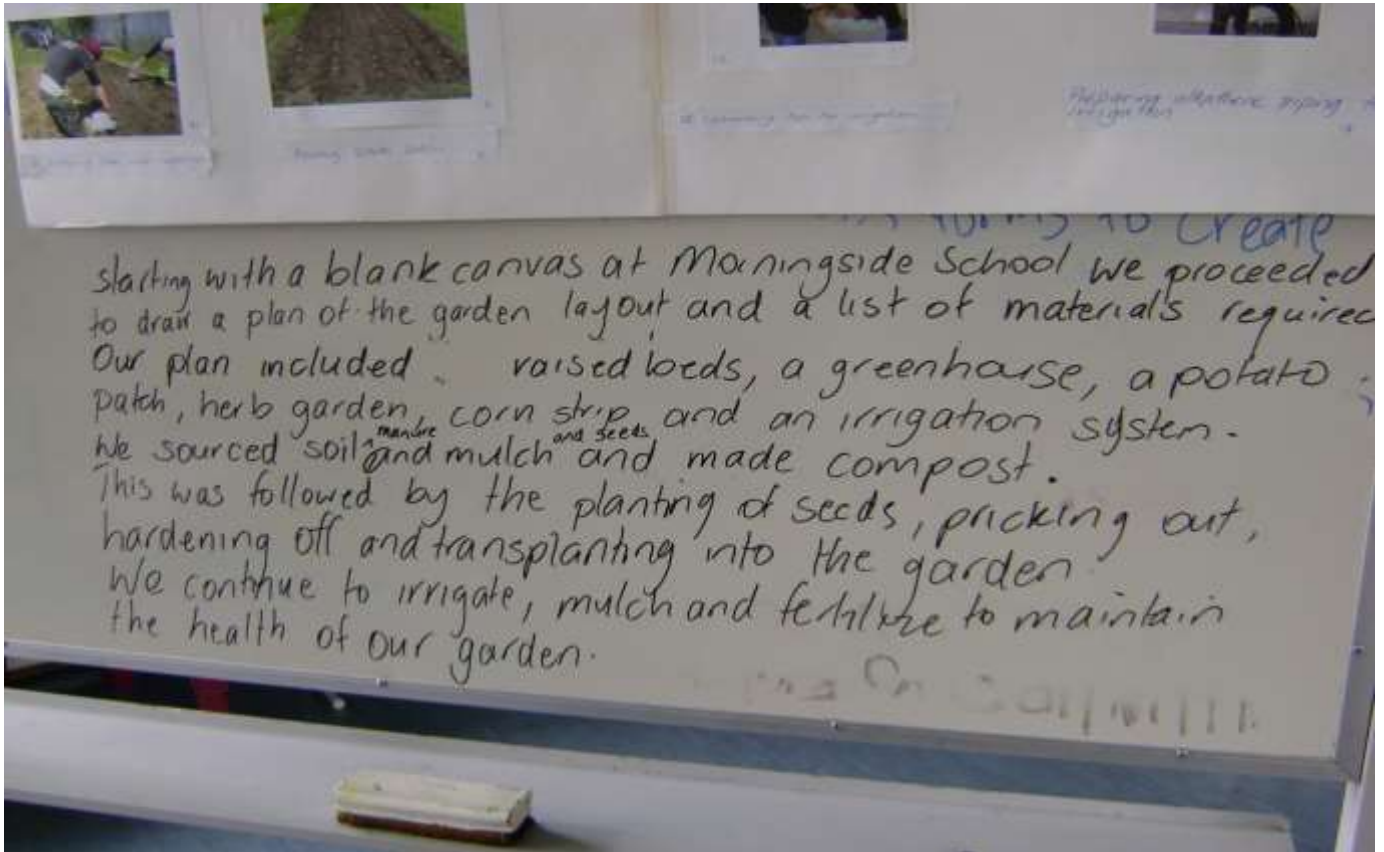 Preparing alkathene piping
irrigation
forms to create
starting with a blank canvas at Morningside School we proceeded
to draw a plan of the garden layout and a list of materials required
Our plan included raised beds, a greenhouse, a potato
patch, herb garden, corn strip and an irrigation system.
manure and seeds
We sourced soil and mulch and made compost.
This was followed by the planting of seeds, pricking out,
hardening off and transplanting into the garden.
We continue to irrigate, mulch and fertilize to maintain
the health of our garden.